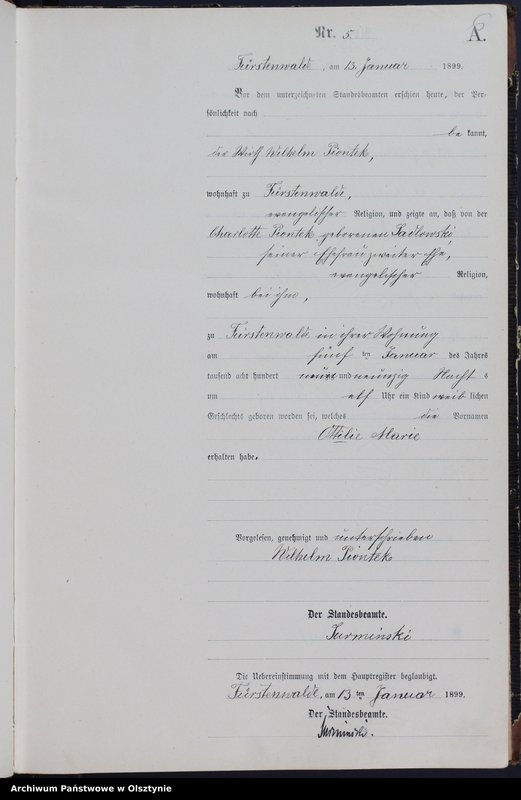 Nr. 5.
A.
Fürstenwalde, am 13. Januar 1899.
Vor dem unterzeichneten Standesbeamten erschien heute, der Per-
sönlichkeit nach
be kannt,
der Wirth Wilhelm Piontek,
wohnhaft zu Fürstenwalde,
evangelischer Religion, und zeigte an, daß von der
Charlotte Piontek geborenen Sadlowski,
seiner Ehefrau zweiter Ehe,
evangelischer Religion,
wohnhaft bei ihm,
zu Fürstenwalde in ihrer Wohnung
am fünf ten Januar des Jahres
tausend acht hundert neun und neunzig Nacht s
um elf Uhr ein Kind weib lichen
Geschlechts geboren worden sei, welches die Vornamen
Ottilie Marie
erhalten habe.
Vorgelesen, genehmigt und unterschrieben
Wilhelm Piontek
Der Standesbeamte.
Surminski
Die Uebereinstimmung mit dem Hauptregister beglaubigt.
Fürstenwalde, am 13 ten Januar 1899.
Der Standesbeamte.
Surminski.
Archiwum Państwowe w Olsztynie